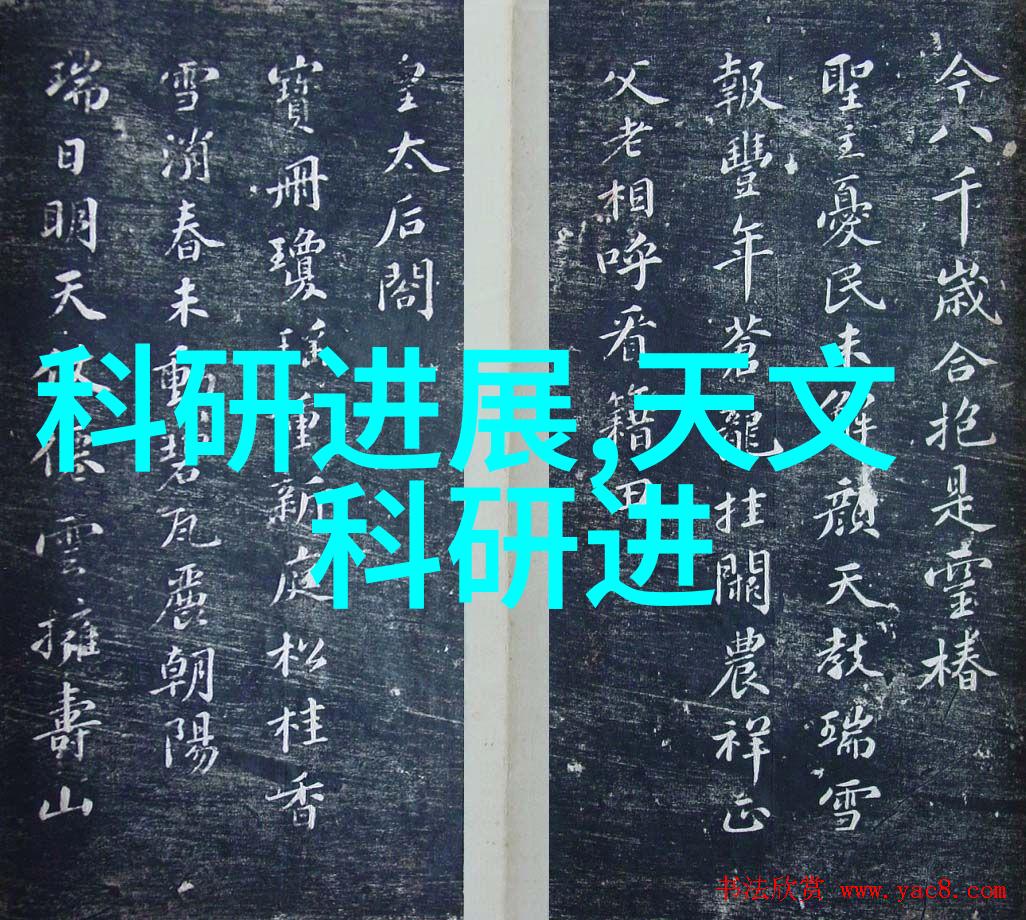 今八千歲合抱是靈椿
聖主憂民未解顏天教瑞雪
報豐年蒼龍挂闕農祥正
父老相呼看籍田
皇太后閤
寶冊瓊瑤重新庭松桂香
雪消春未動碧瓦麗朝陽
瑞日明天僊雲擁壽山
科研进展,天文
科研进
书法欣赏 www.yac8.com